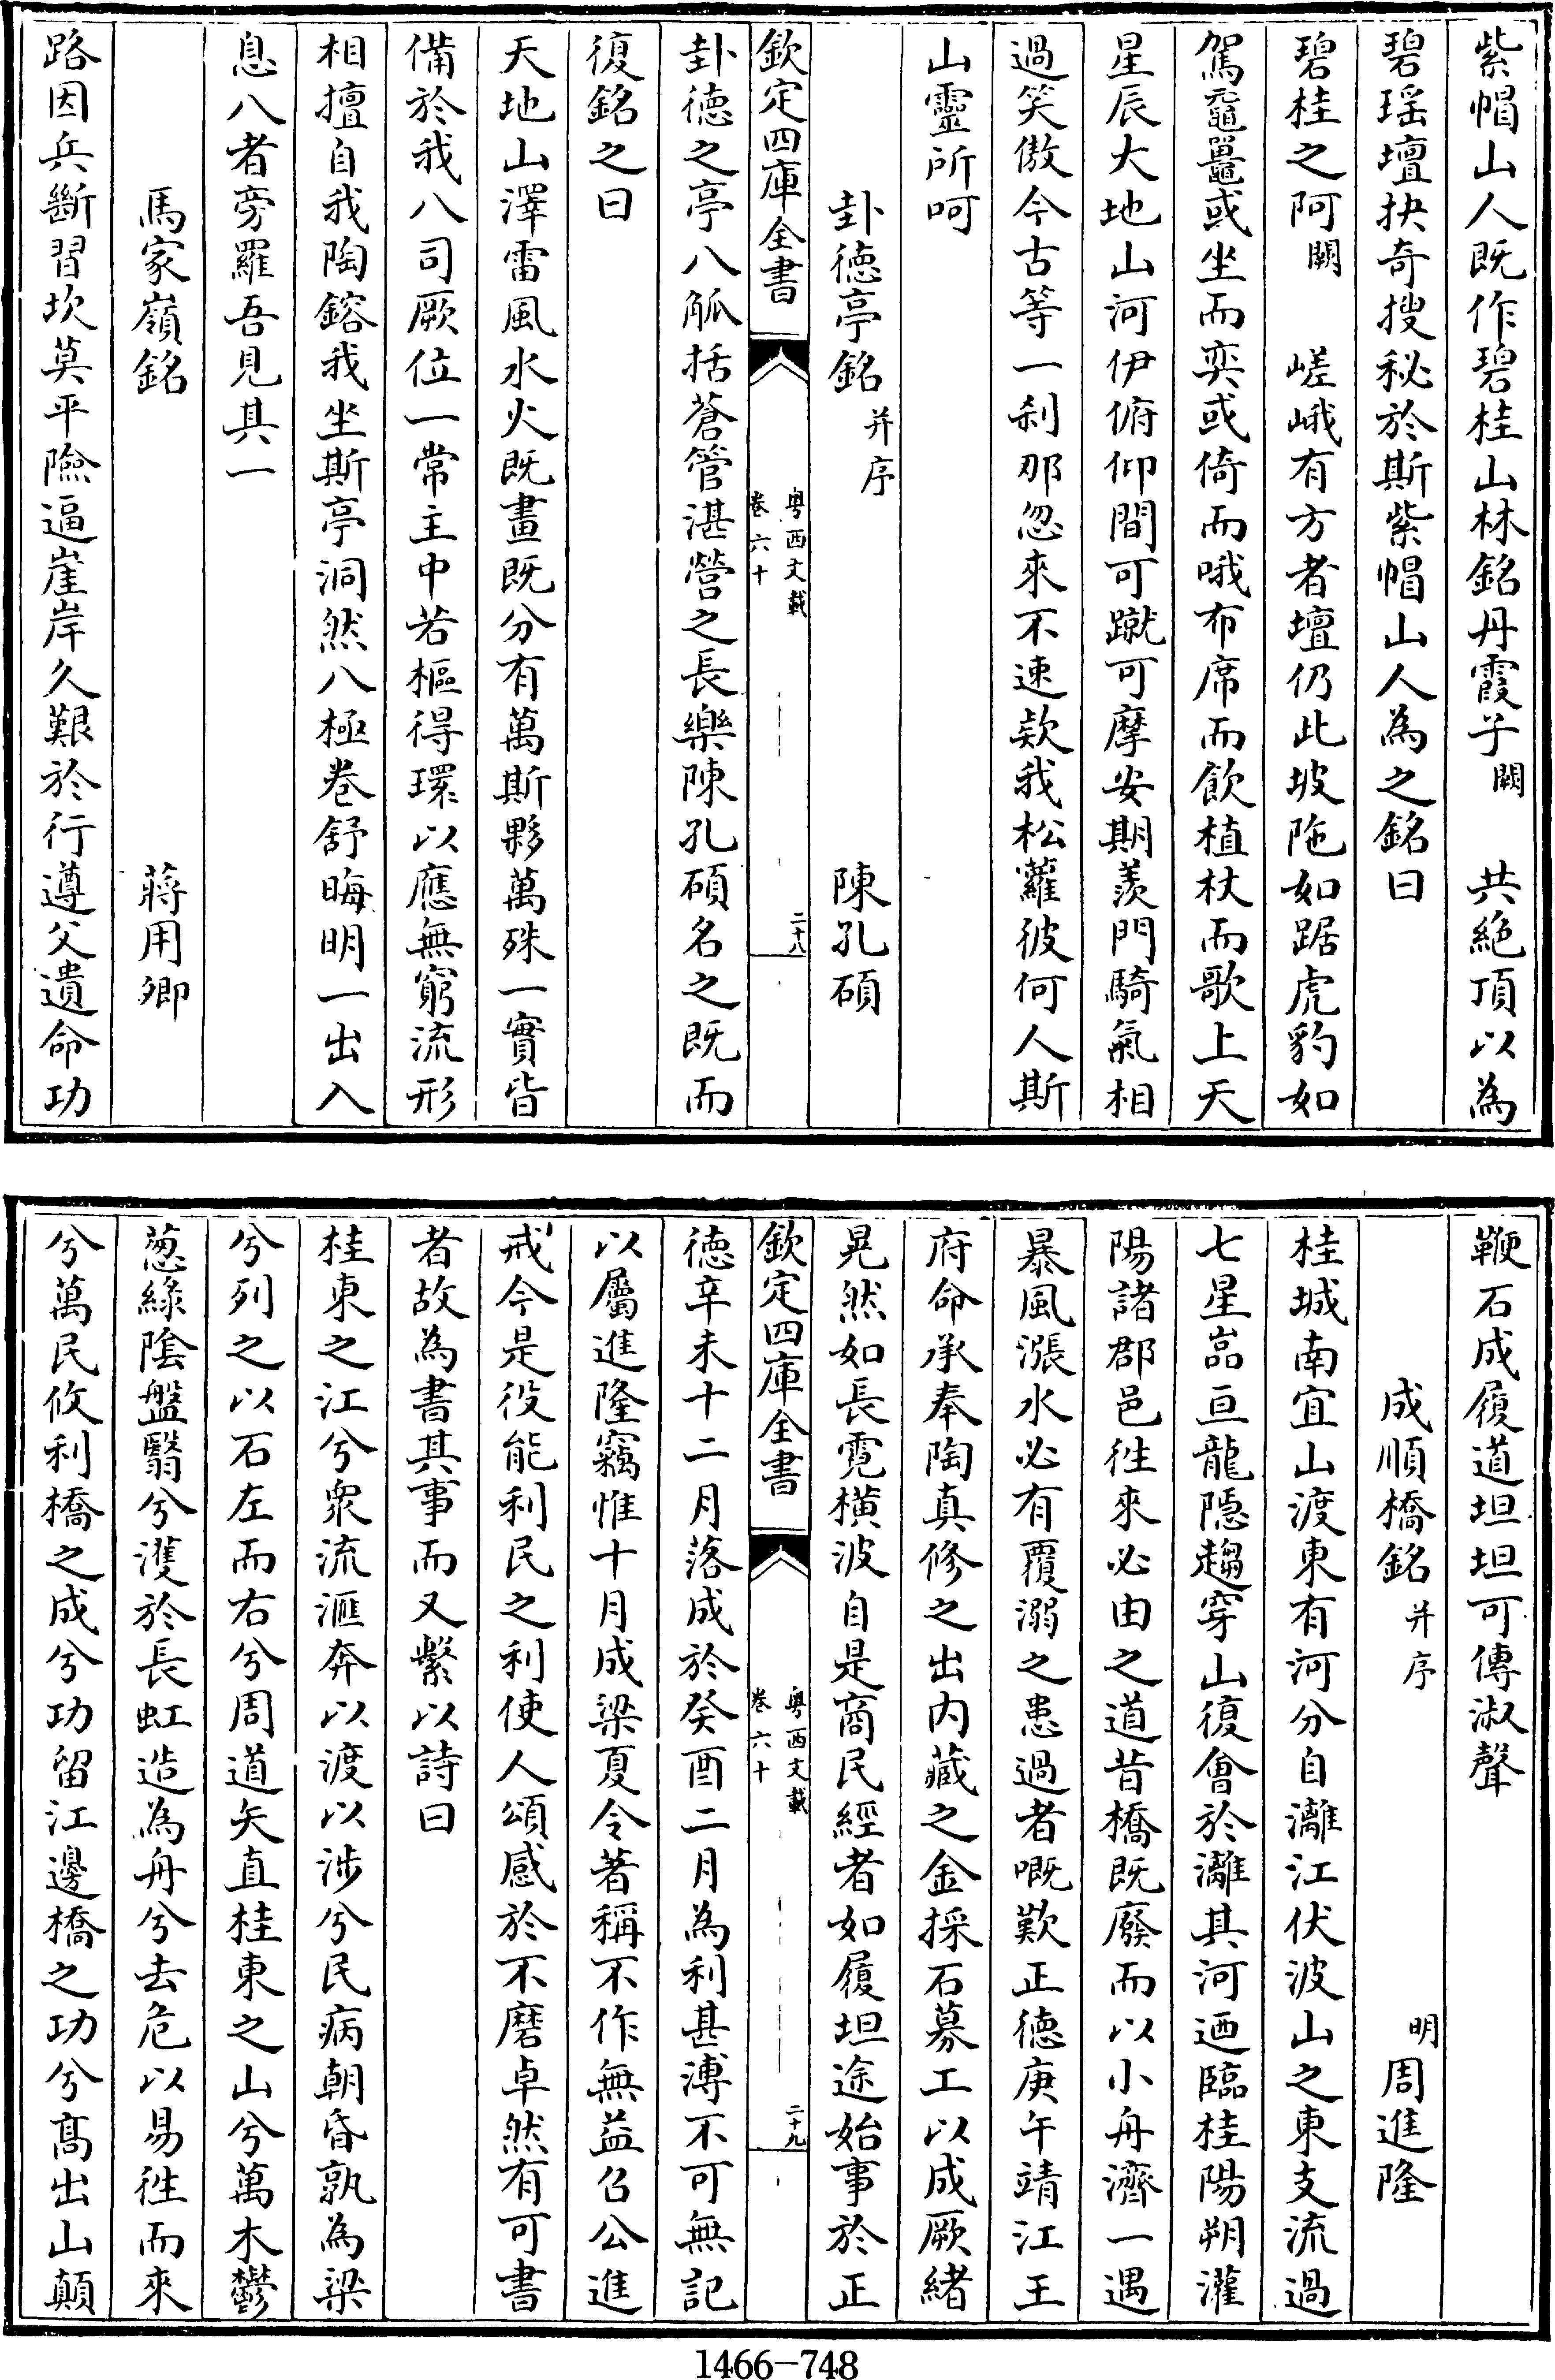 紫帽山人既作碧桂山林銘丹霞子闕　共絶頂以為
碧瑶壇抉奇搜秘於斯紫帽山人為之銘曰
碧桂之阿闕　嵯峨有方者壇仍此坡陁如踞虎豹如
駕黿鼉或坐而奕或倚而哦布席而飲植杖而歌上天
星辰大地山河伊俯仰間可蹴可摩安期羨門騎氣相
過笑傲今古等一刹那忽來不速欵我松蘿彼何人斯
山靈所呵
卦徳亭銘并序　陳孔碩
欽定四庫全書　粤西文載　卷六十　二十八
卦徳之亭八觚括蒼管湛營之長樂陳孔碩名之既而
復銘之曰
天地山澤雷風水火既畫既分有萬斯夥萬殊一實皆
備於我八司厥位一常主中若樞得環以應無窮流形
相擅自我陶鎔我坐斯亭洞然八極卷舒晦明一出入
息八者旁羅吾見其一
馬家嶺銘　蔣用卿
路因兵斷習坎莫平險逼崖岸久艱於行遵父遺命功
鞭石成履道坦坦可傳淑聲
成順橋銘并序　明周進隆
桂城南宜山渡東有河分自灕江伏波山之東支流過
七星嵓亘龍隠趨穿山復會於灕其河迺臨桂陽朔灌
陽諸郡邑徃來必由之道昔橋既廢而以小舟濟一遇
暴風漲水必有覆溺之患過者嘅歎正徳庚午靖江王
府命承奉陶真修之出内藏之金採石募工以成厥緒
晃然如長霓横波自是商民經者如履坦途始事於正
欽定四庫全書　粤西文載　卷六十　二十九
徳辛未十二月落成於癸酉二月為利甚溥不可無記
以屬進隆竊惟十月成梁夏令著稱不作無益召公進
戒今是役能利民之利使人頌感於不磨卓然有可書
者故為書其事而又繫以詩曰
桂東之江兮衆流滙奔以渡以涉兮民病朝昏孰為梁
兮列之以石左而右兮周道矢直桂東之山兮萬木鬱
葱緑陰盤翳兮濩於長虹造為舟兮去危以易徃而來
兮萬民攸利橋之成兮功留江邊橋之功兮髙出山顛
1466-748